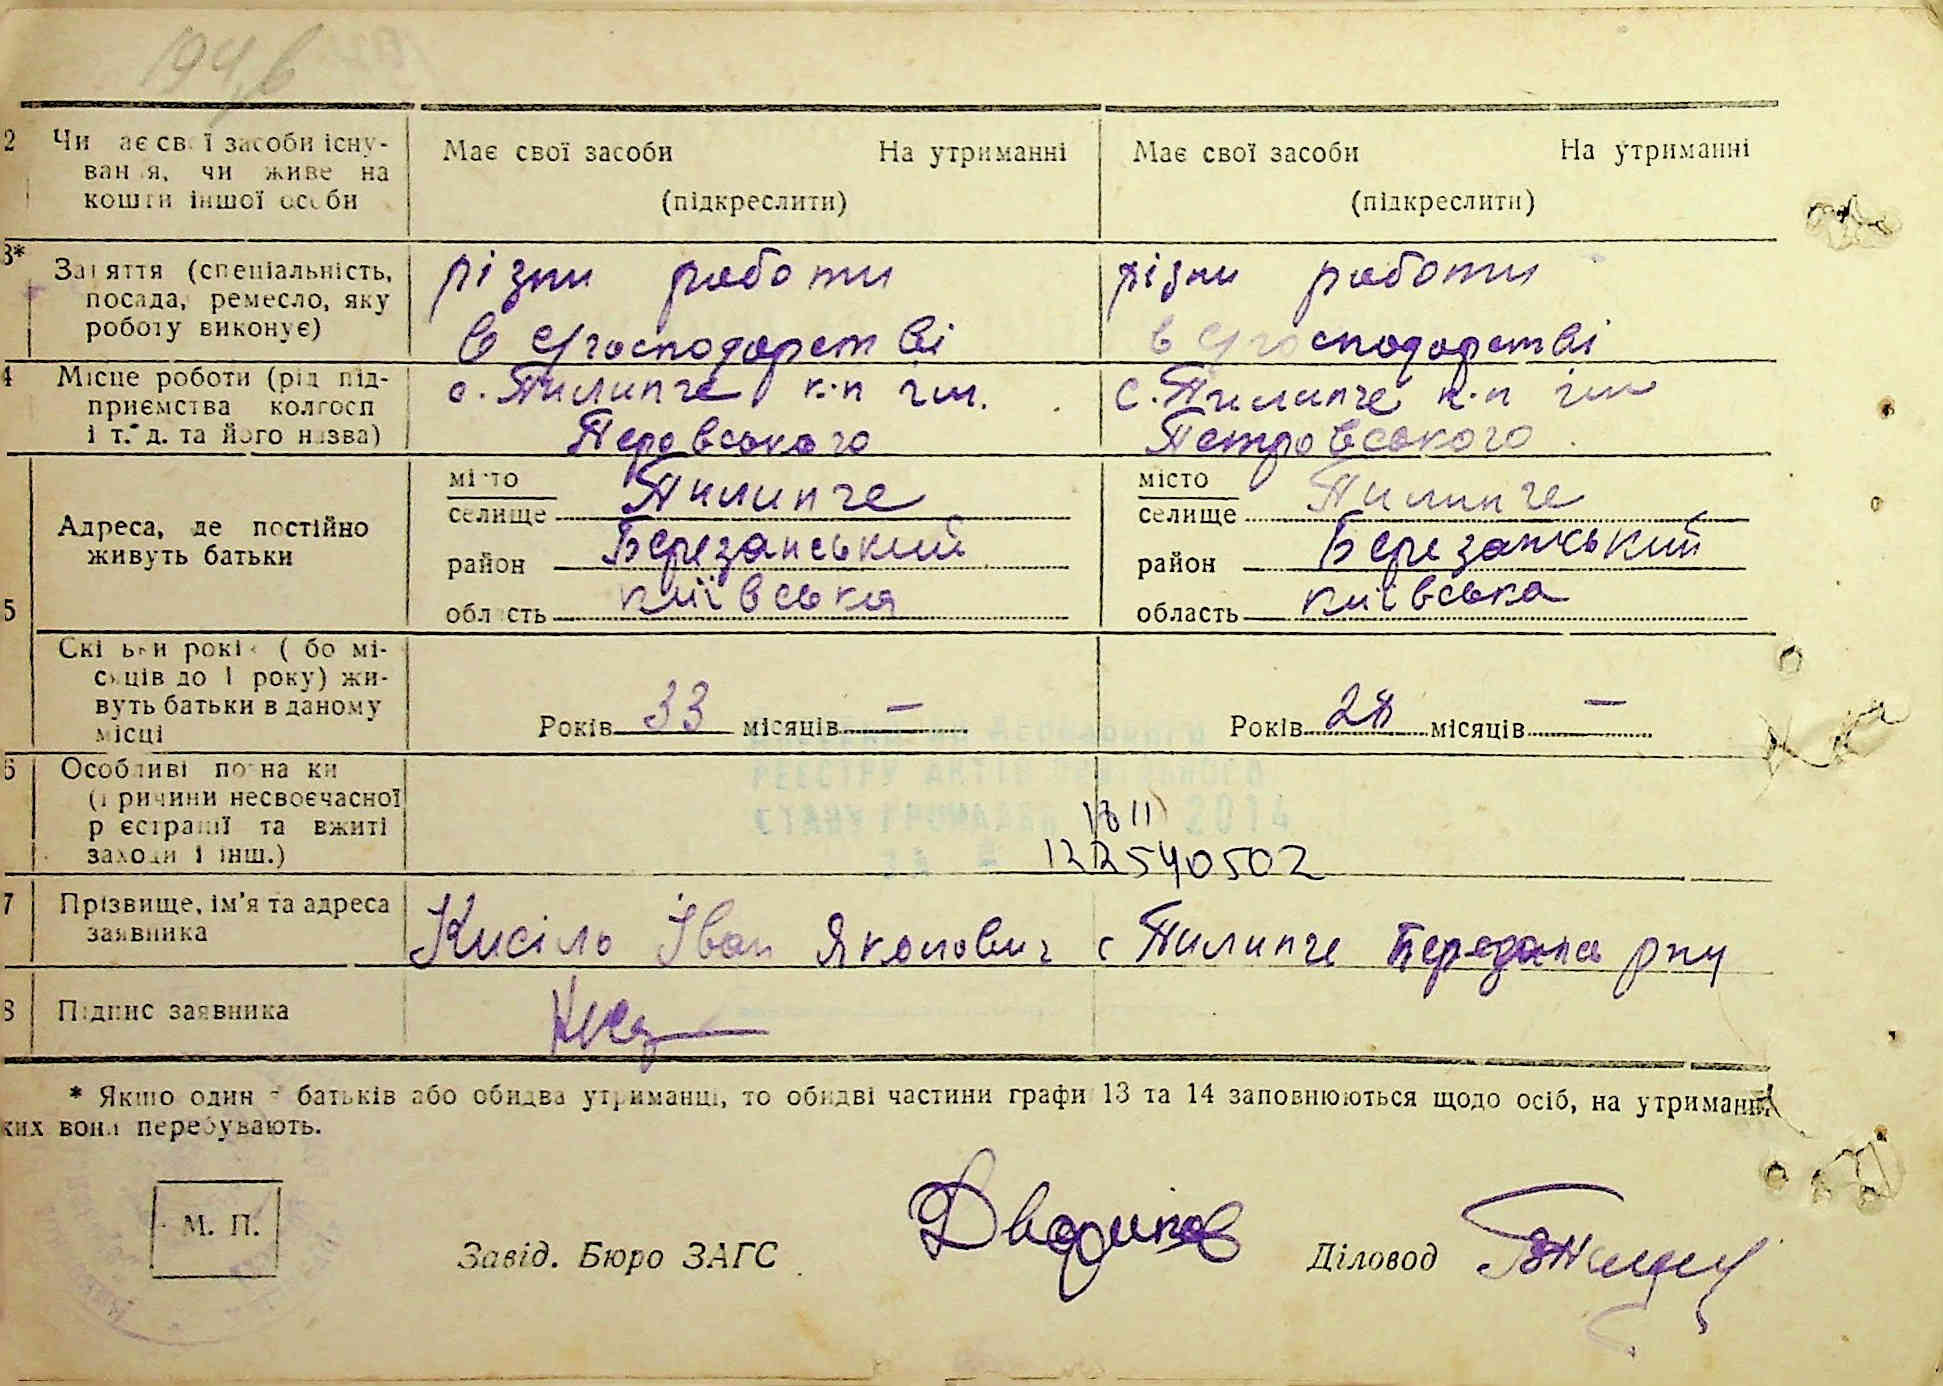 194
2 Чи має свої засоби існу-
вання, чи живе на
кошти іншої особи
Має свої засоби На утриманні
(підкреслити)
Має свої засоби На утриманні
(підкреслити)
3* Заняття (спеціальність,
посада, ремесло, яку
роботу виконує)
різни роботи
в с/господарстві
різни роботи
в с/господарстві
4 Місце роботи (рід під-
приємства колгосп
і т. д. та його назва)
с. Пилипче к-п їм.
Перовського
С. Пилипче к-п їм
Петровського
5 Адреса, де постійно
живуть батьки
місто
селище Пилипче
район Березанський
область київська
місто
селище Пилипче
район Березанський
область київська
Скільки років (або мі-
сяців до 1 року) жи-
вуть батьки в даному
місці
Років 33 місяців —
Років 28 місяців —
6 Особливі познаки
(причини несвоєчасної
реєстрації та вжиті
заходи і інш.)
РЕЄСТРУ АКТІВ ЦИВІЛЬНОГО
СТАНУ ГРОМАДЯН
2014
122540502
7 Прізвище, ім'я та адреса
заявника
Кисіль Іван Якович с Пилипче р-ну
8 Підпис заявника
* Якщо один з батьків або обидва утриманці, то обидві частини графи 13 та 14 заповнюються щодо осіб, на утриманні
яких вони перебувають.
М. П.
Завід. Бюро ЗАГС
Діловод